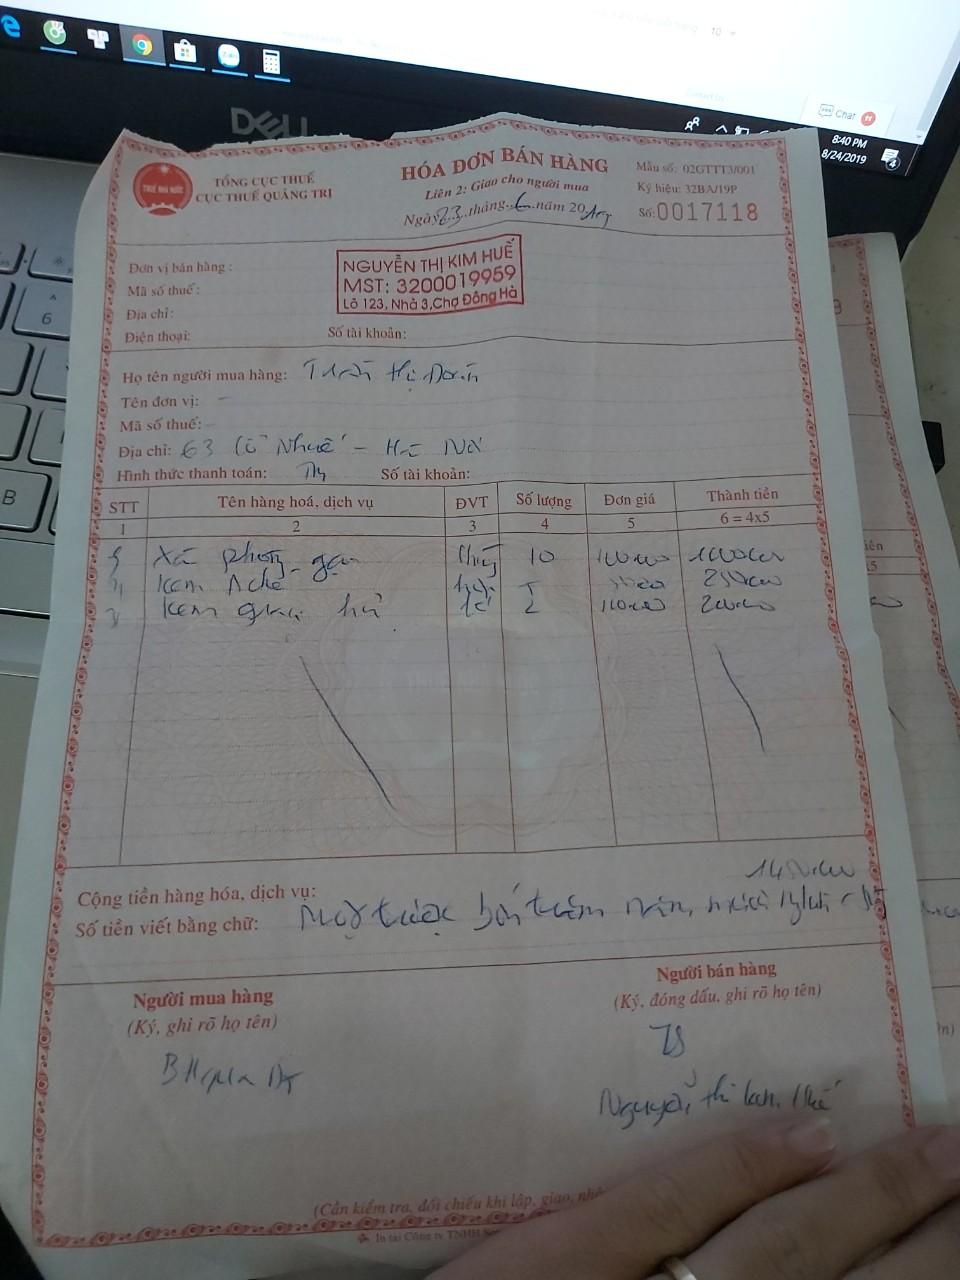 DELL
Chat 11
8:40 PM
8/24/2019
TỔNG CỤC THUẾ
CỤC THUẾ QUẢNG TRỊ
THUẾ NHÀ NƯỚC
HÓA ĐƠN BÁN HÀNG
Liên 2: Giao cho người mua
Ngày 23 tháng 6 năm 2019
Mẫu số: 02GTTT3/001
Ký hiệu: 32BA/19P
Số: 0017118
Đơn vị bán hàng :
Mã số thuế :
Địa chỉ:
Điện thoại: Số tài khoản:
NGUYỄN THỊ KIM HUẾ
MST: 3200019959
Lô 123, Nhà 3, Chợ Đông Hà
Họ tên người mua hàng: Trần thị
Tên đơn vị: -
Mã số thuế: -
Địa chỉ: 63 Cổ Nhuế - Hà Nội
Hình thức thanh toán: TM Số tài khoản:
STT Tên hàng hoá, dịch vụ ĐVT Số lượng Đơn giá Thành tiền
1 2 3 4 5 6 = 4x5
Xà phòng 10 100000 1000000
Kem 5 250000
Kem 2
Cộng tiền hàng hóa, dịch vụ: 1450000
Số tiền viết bằng chữ: Một triệu bốn trăm năm mươi
Người mua hàng
(Ký, ghi rõ họ tên)
Người bán hàng
(Ký, đóng dấu, ghi rõ họ tên)
Nguyễn thị kim Huế
(Cần kiểm tra, đối chiếu khi lập, giao,
In tại Công ty TNHH